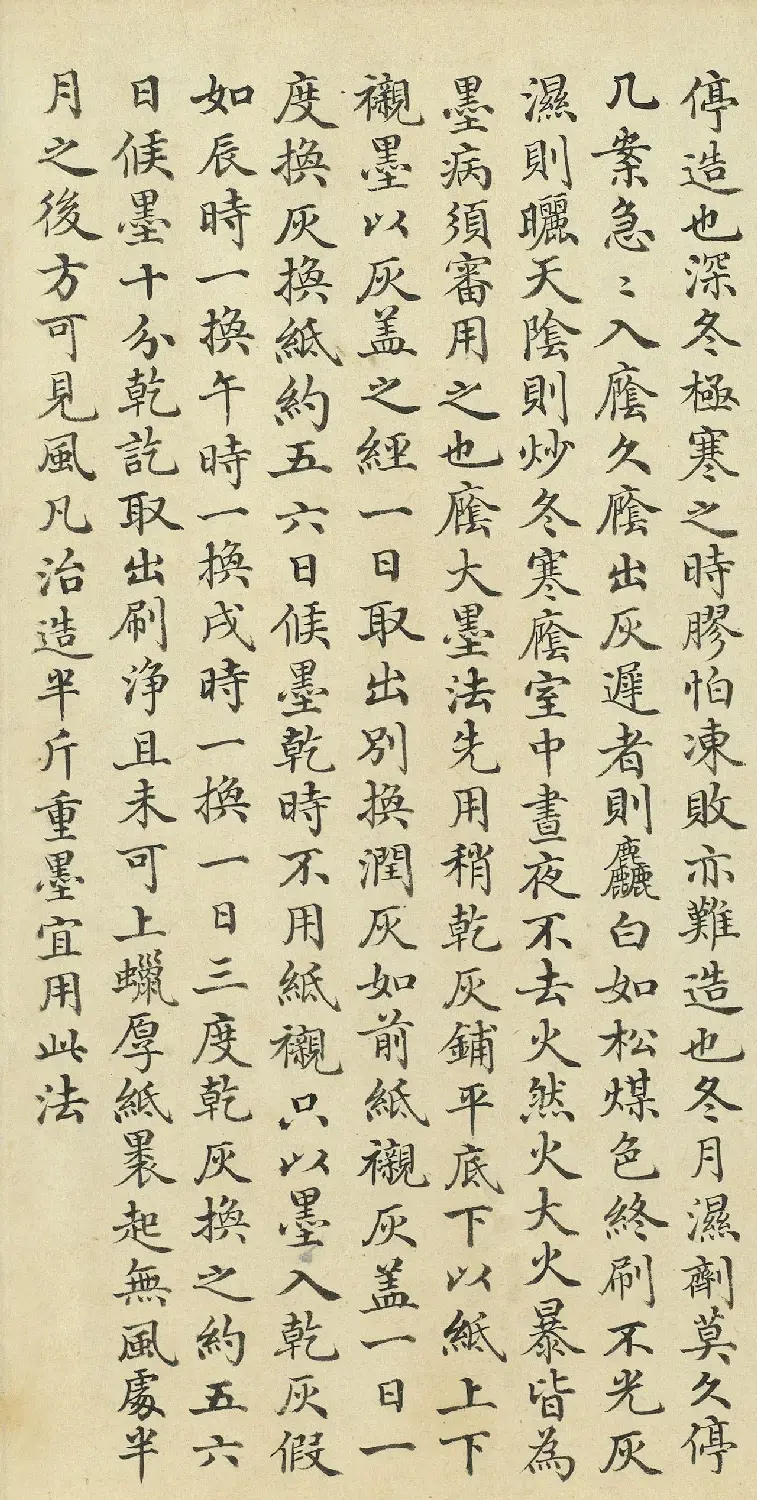 停造也深冬極寒之時膠怕凍敗亦難造也冬月濕劑莫久停
几案急〻入廕久廕出灰遲者則麤白如松煤色終刷不光灰
濕則曬天陰則炒冬寒廕室中晝夜不去火然火大火暴皆為
墨病須審用之也廕大墨法先用稍乾灰鋪平底下以紙上下
襯墨以灰盖之經一日取出別換潤灰如前紙襯灰盖一日一
度換灰換紙約五六日候墨乾時不用紙襯只以墨入乾灰假
如辰時一換午時一換戌時一換一日三度乾灰換之約五六
日候墨十分乾訖取出刷淨且未可上蠟厚紙褁起無風處半
月之後方可見風凡治造半斤重墨宜用此法